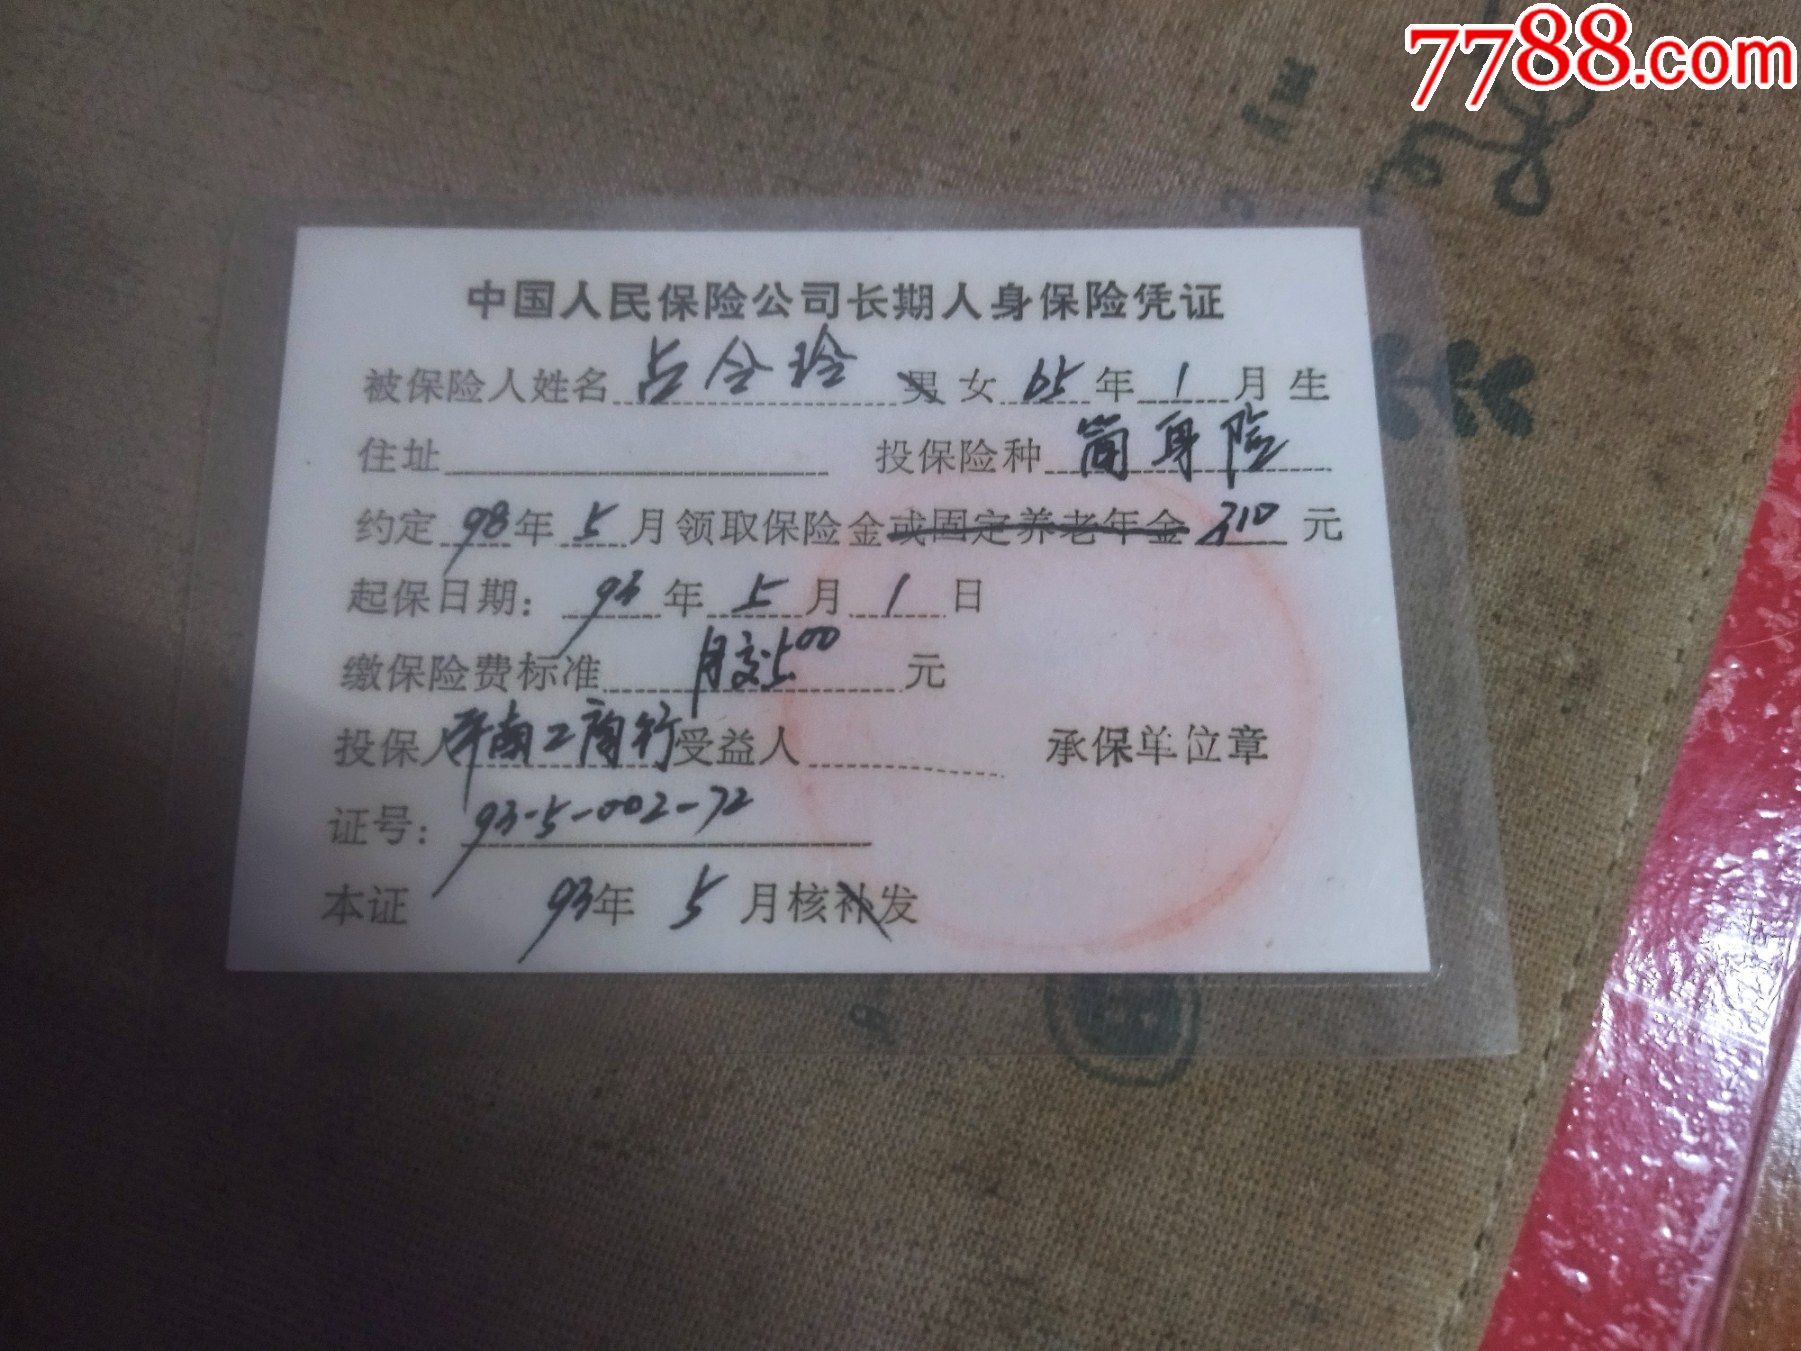 7788.com
中国人民保险公司长期人身保险凭证
被保险人姓名 占全玲 男 女 65 年 1 月 生
住址 投保险种 简身险
约定 98 年 5 月领取保险金或固定养老年金 310 元
起保日期: 93 年 5 月 1 日
缴保险费标准 月交5.00 元
投保人 平南工商行 受益人 承保单位章
证号: 93-5-002-72
本证 93年 5 月核补发